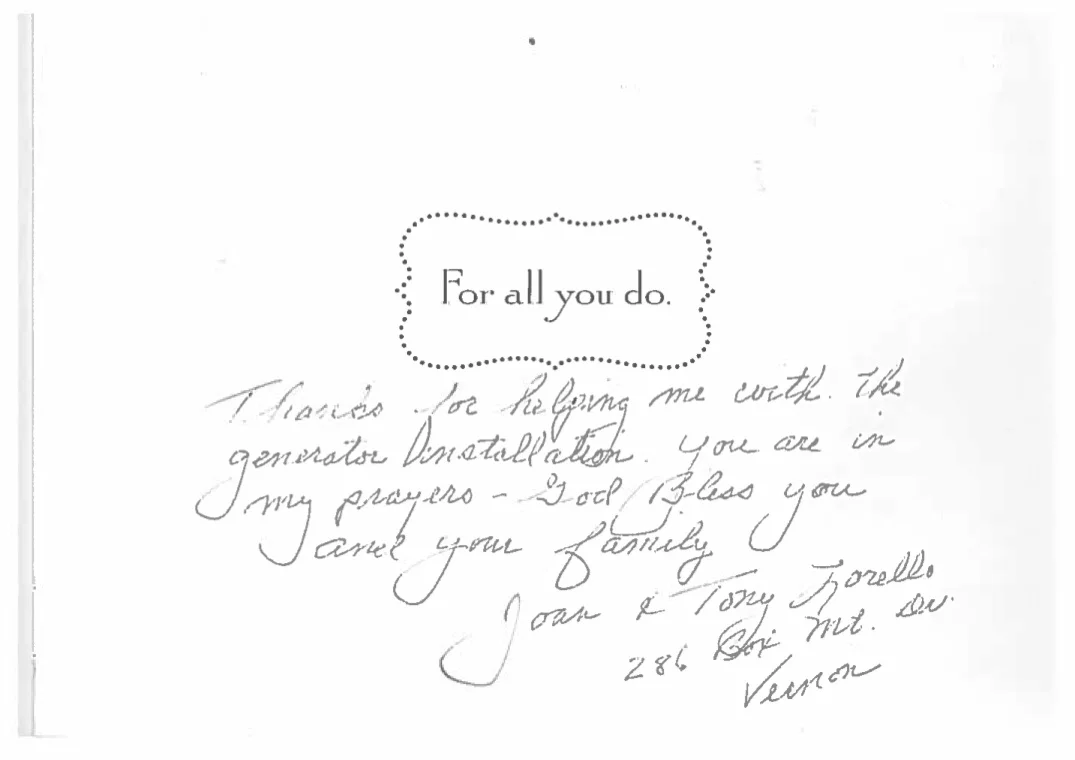 For all you do.
Thanks for helping me with the
generator installation. You are in
my prayers - God Bless you
and your family
Joan & Tony
286 Box Mt. Dr.
Vernon